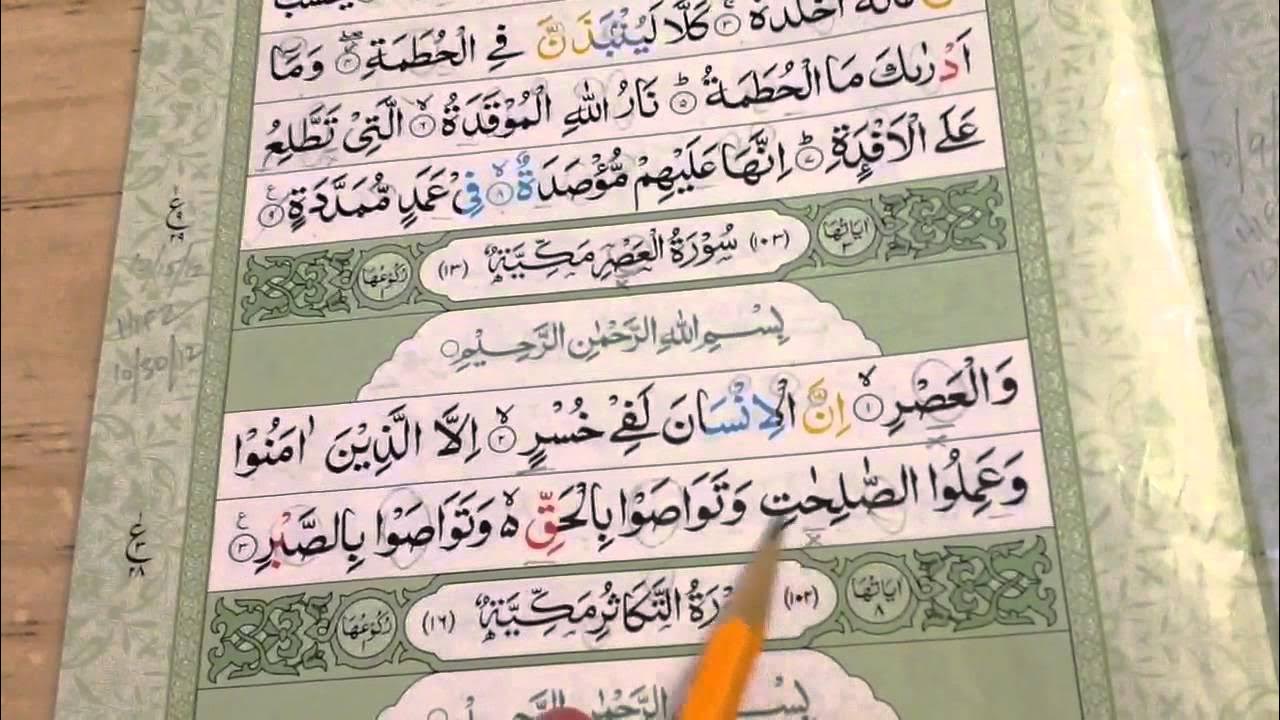 مَالَهٗٓ اَخْلَدَهٗ ۝٣ كَلَّا لَيُنْۢبَذَنَّ فِي الْحُطَمَةِ ۝٤ وَمَآ
اَدْرٰىكَ مَا الْحُطَمَةُ ۝٥ نَارُ اللّٰهِ الْمُوْقَدَةُ ۝٦ الَّتِيْ تَطَّلِعُ
عَلَى الْاَفْـِٕدَةِ ۝٧ اِنَّهَا عَلَيْهِمْ مُّؤْصَدَةٌ ۝٨ فِيْ عَمَدٍ مُّمَدَّدَةٍ ۝٩
اٰيَاتُهَا ٣ (١٠٣) سُوْرَةُ الْعَصْرِ مَكِّيَّةٌ (١٣) رُكُوْعُهَا ١
بِسْمِ اللّٰهِ الرَّحْمٰنِ الرَّحِيْمِ
وَالْعَصْرِ ۝١ اِنَّ الْاِنْسَانَ لَفِيْ خُسْرٍ ۝٢ اِلَّا الَّذِيْنَ اٰمَنُوْا
وَعَمِلُوا الصّٰلِحٰتِ وَتَوَاصَوْا بِالْحَقِّ ۵ وَتَوَاصَوْا بِالصَّبْرِ ۝٣
اٰيَاتُهَا ٨ (١٠٢) سُوْرَةُ التَّكَاثُرِ مَكِّيَّةٌ (١٦) رُكُوْعُهَا ١
بِسْمِ اللّٰهِ الرَّحْمٰنِ الرَّحِيْمِ
ع ٩ ٢٩
HIFZ
10/30/12
ع ٢٨